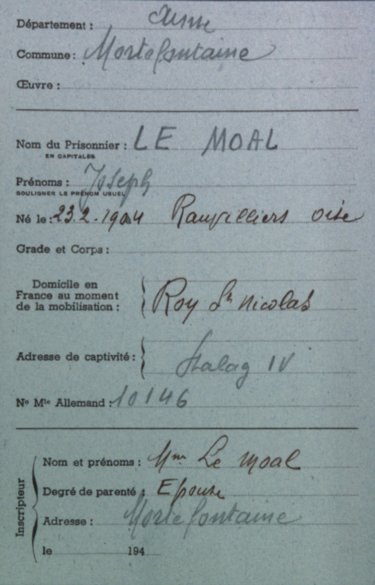 Département : Aisne
Commune : Mortefontaine
Œuvre :
Nom du Prisonnier : LE MOAL
EN CAPITALES
Prénoms : Joseph
SOULIGNER LE PRÉNOM USUEL
Né le : 23.2.1904 Oise
Grade et Corps :
Domicile en
France au moment
de la mobilisation : Roy St Nicolas
Adresse de captivité : Stalag IV
No Mle Allemand : 10146
Inscripteur
Nom et prénoms : Mme Le Moal
Degré de parenté : Epouse
Adresse : Mortefontaine
le 194